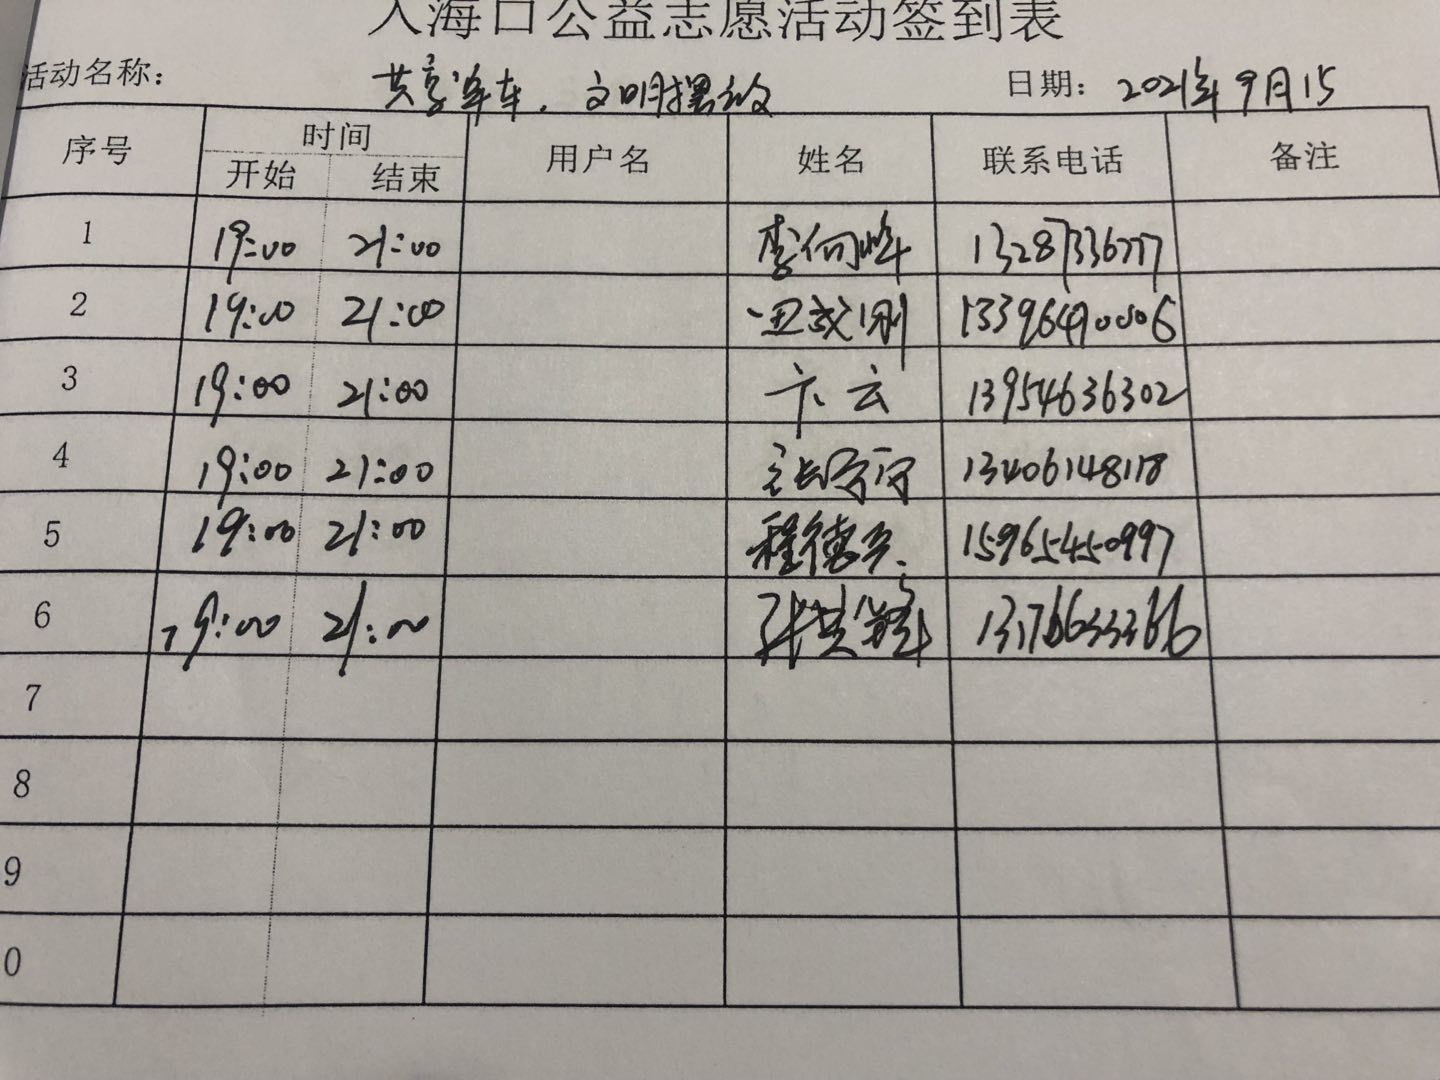 入海口公益志愿活动签到表
活动名称： 共享单车，文明摆放 日期： 2021年9月15
序号 时间 用户名 姓名 联系电话 备注
开始 结束
1 19:00 21:00 李向峰
2 19:00 21:00 13396490006
3 19:00 21:00 卞云 13954636302
4 19:00 21:00 13406148118
5 19:00 21:00 程德 15965450997
6 19:00 21:00 张洪峰
7
8
9
0